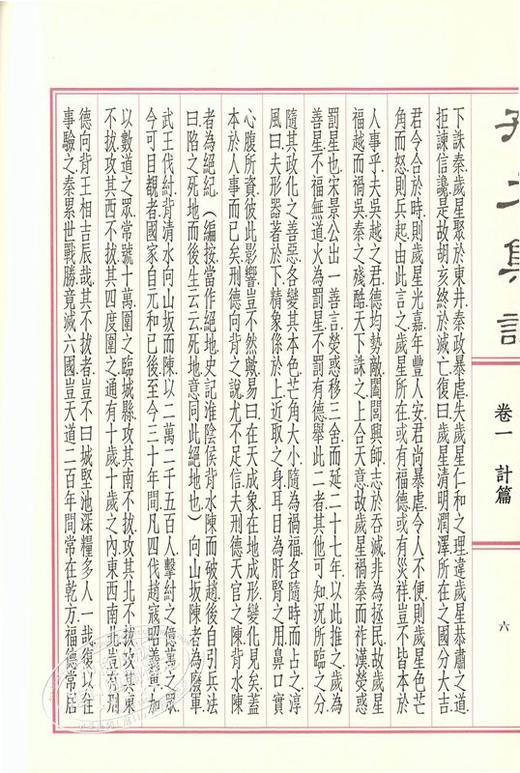 孫子集註
卷一 計篇
六
下誅秦.歲星聚於東井.秦政暴虐.失歲星仁和之理.違歲星恭肅之道.
拒諫信讒.是故胡亥終於滅亡.復曰.歲星清明潤澤.所在之國分大吉.
君令合於時.則歲星光嘉.年豐人安.君尚暴虐.令人不便.則歲星色芒
角而怒.則兵起.由此言之.歲星所在.或有福德.或有災祥.豈不皆本於
人事乎.夫吳越之君.德均勢敵.闔閭興師.志於吞滅.非為拯民.故歲星
福越而禍吳.秦之殘酷.天下誅之.上合天意.故歲星禍秦而祚漢.熒惑
罰星也.宋景公出一善言.熒惑移三舍.而延二十七年.以此推之.歲為
善星.不福無道.火為罰星.不罰有德.舉此二者.其他可知.況所臨之分.
隨其政化之善惡.各變其本色.芒角大小.隨為禍福.各隨時而占之.淳
風曰.夫形器著於下.精象係於上.近取之身.耳目為肝腎之用.鼻口實
心腹所資.彼此影響.豈不然歟.易曰.在天成象.在地成形.變化見矣.蓋
本於人事而已矣.刑德向背之說.尤不足信.夫刑德天官之陳.背水陳
者為絕紀.(編按當作絕地.史記淮陰侯背水陳而破趙後.自引兵法
曰.陷之死地而後生云云.死地意同此絕地也.)向山坂陳者為廢軍.
武王伐紂.背清水.向山坂而陳.以二萬二千五百人.擊紂之億萬之眾.
今可目覩者.國家自元和已後至今三十年間.凡四伐趙寇.昭義軍加
以數道之眾.常號十萬.圍之臨城縣.攻其南不拔.攻其北不拔.攻其東
不拔.攻其西不拔.其四度圍之.通有十歲.十歲之內.東西南北.豈有刑
德向背.王相吉辰哉.其不拔者.豈不曰城堅池深糧多人一哉.復以往
事驗之.秦累世戰勝.竟滅六國.豈天道二百年間.常在乾方.福德常居